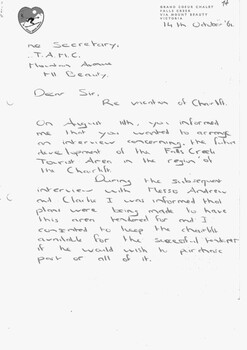 GRAND COEUR CHALET
FALLS CREEK
VIA MOUNT BEAUTY
VICTORIA
14th October '6
The Secretary.
T.A.M.C.
Mountain Avenue
Mt Beauty.
Dear Sir.
Re vacation of Chairlift.
On August 11th, you informed
me that you wanted to arrange
an interview concerning the future
development of the Falls Creek
Tourist Area in the region of
the Chairlift.
During the subsequent
interview with Messrs Andrew
and Clarke I was informed that
plans were being made to have
this area tendered for and I
consented to keep the chairlift
available for the successful tenderer
if he would wish to purchase
part or all of it.